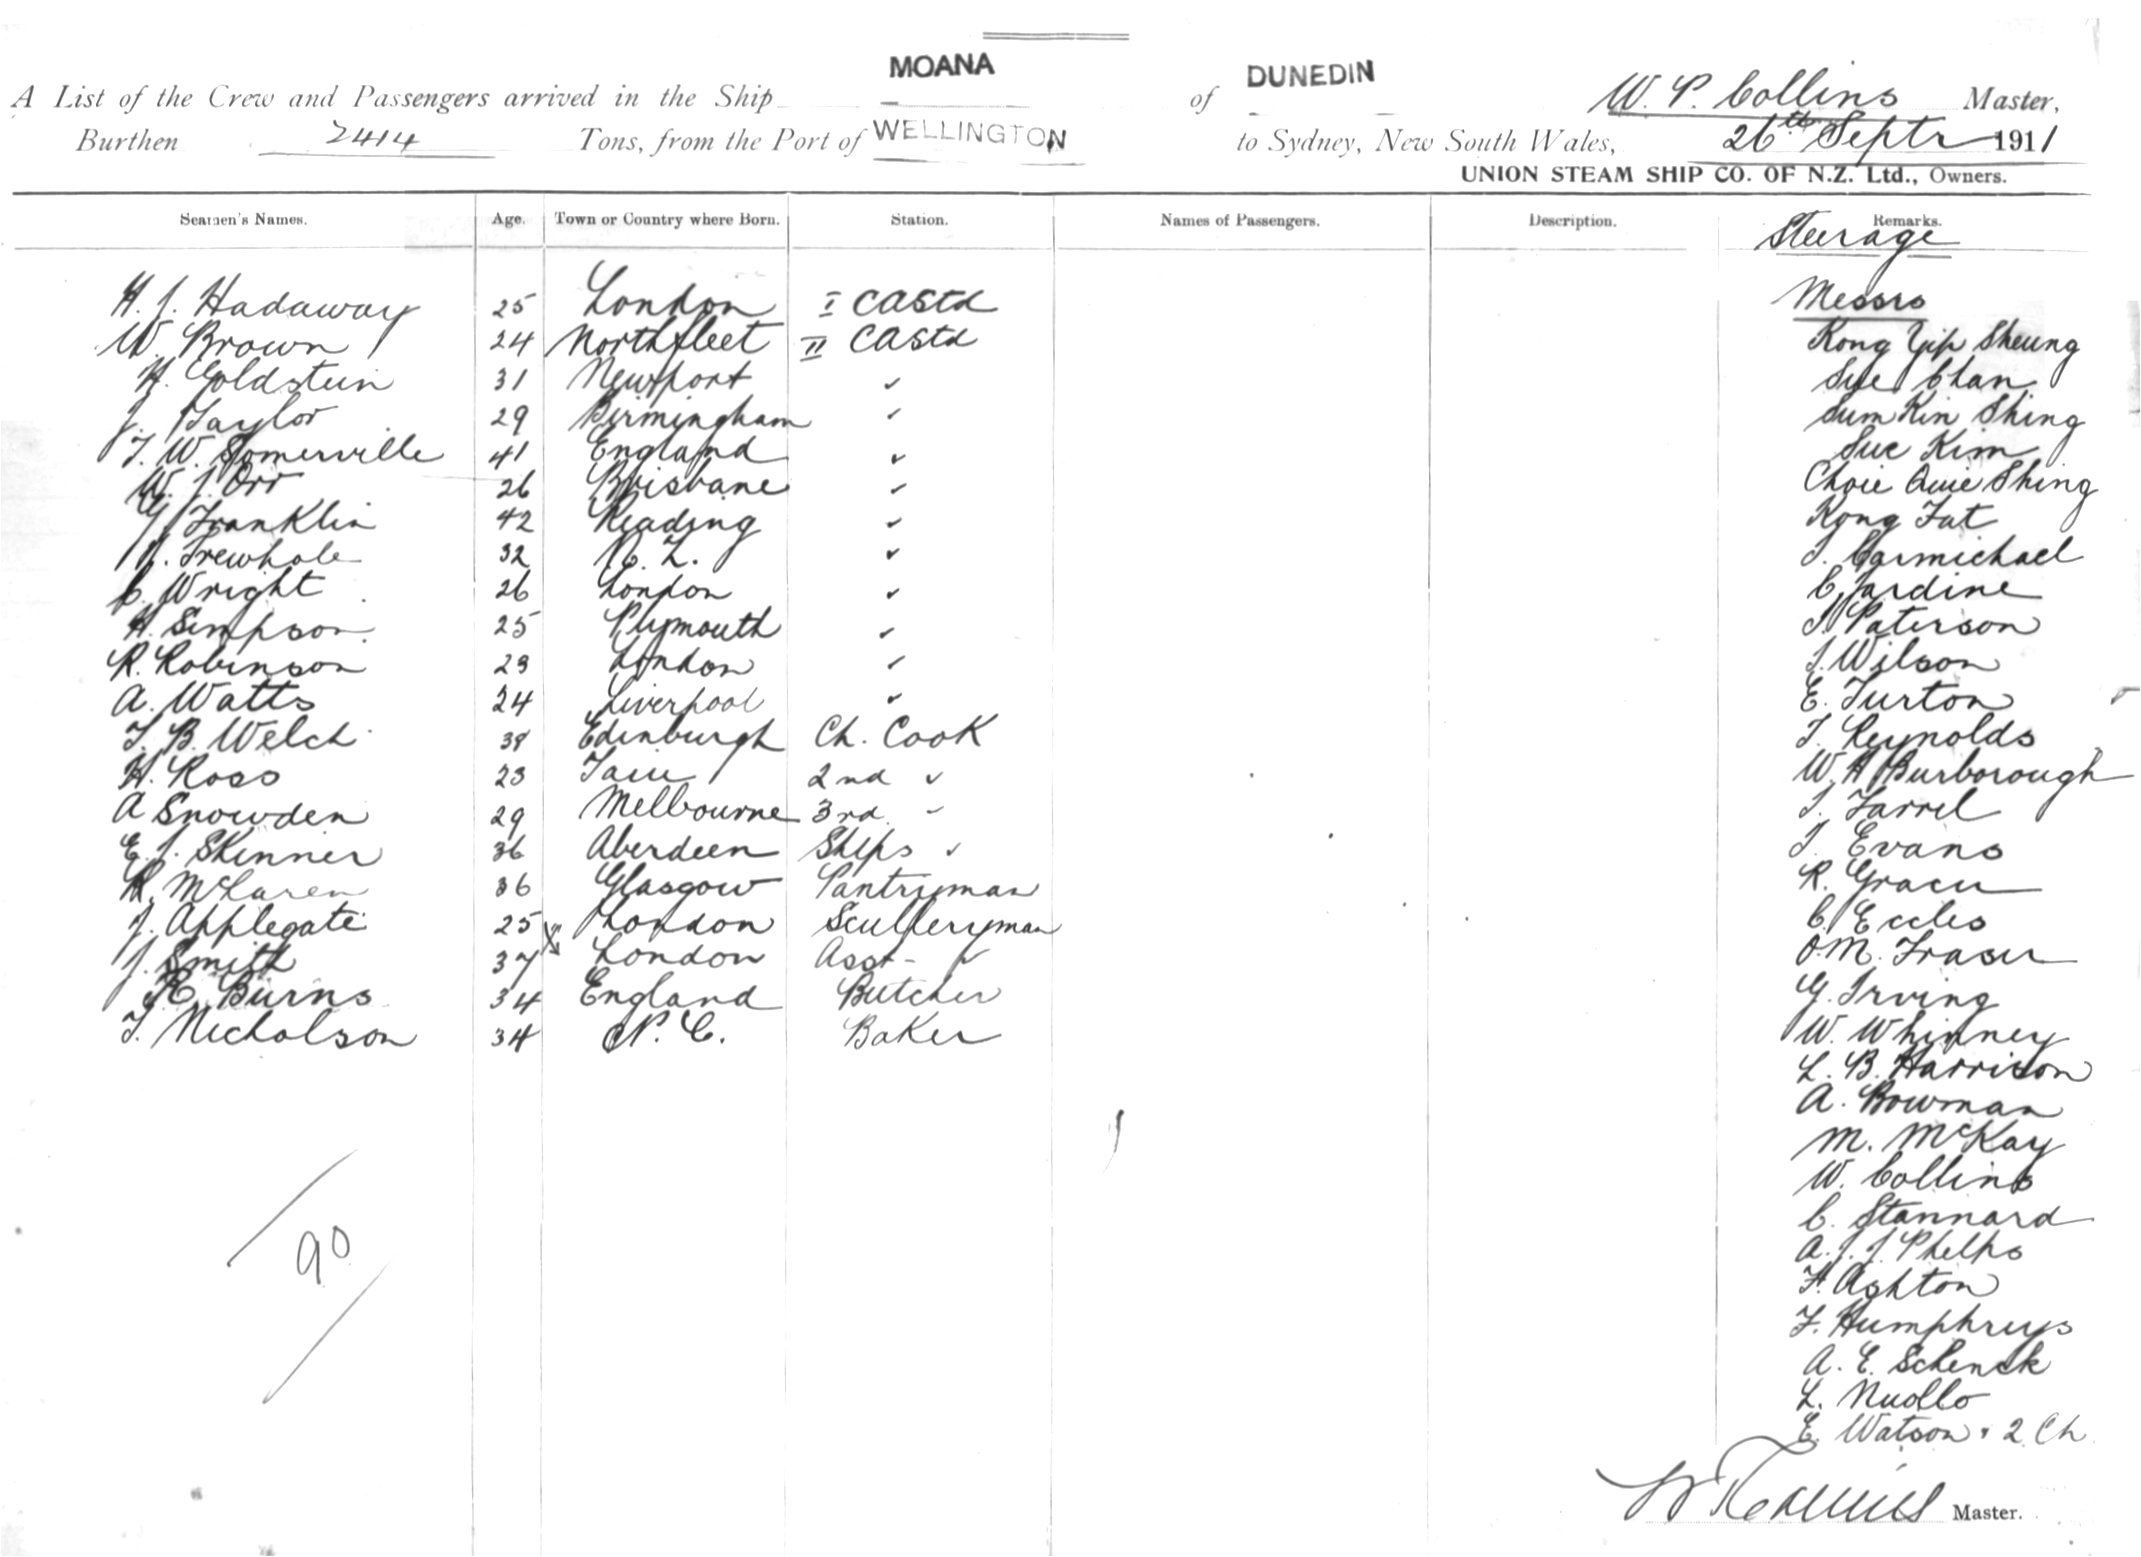 MOANA DUNEDIN
A List of the Crew and Passengers arrived in the Ship of W. P. Collins Master,
Burthen 2414 Tons, from the Port of WELLINGTON to Sydney, New South Wales, 26th Septr 1911
UNION STEAM SHIP CO. OF N.Z. Ltd., Owners.
Seamen's Names. Age. Town or Country where Born. Station. Names of Passengers. Description. Remarks.
Steerage
H. J. Hadaway 25 London I CAStd
W. Brown 24 Northfleet II CAStd
H. Goldstein 31 Newport ✓
J. Taylor 29 Birmingham ✓
T. W. Somerville 41 England ✓
W. J. Orr 26 Brisbane ✓
G. Franklin 42 Reading ✓
Trewhole 32 N. Z. ✓
C. Wright 26 London ✓
H. Simpson 25 Plymouth ✓
R. Robinson 23 London ✓
A. Watts 24 Liverpool ✓
T. B. Welch 38 Edinburgh Ch. Cook
H. Ross 23 2nd ✓
A Snowden 29 Melbourne 3rd
E. J. Skinner 36 Aberdeen Ships ✓
R. McLaren 36 Glasgow Pantryman
J. Applegate 25 London Sculleryman
J. Smith 37 London Asst - ✓
R. Burns 34 England Butcher
T. Nicholson 34 Baker
90
Messrs
Kong Yip Sheung
Sue Chan
Sum Kin Shing
Sue Kim
Choie Quie Shing
Kong Fat
J. Carmichael
C. Jardine
J. Paterson
J. Wilson
E. Turton
T. Reynolds
W. H. Burborough
J. Farrel
T. Evans
R. Gracie
C. Eccles
O. M. Fraser
G. Irving
W. Whinney
L. B. Harrison
A. Bowman
M. McKay
W. Collins
C. Stannard
A. J. J. Phelps
F. Ashton
F. Humphreys
A. E. Schenck
L.
E. Watson + 2 Ch
Master.